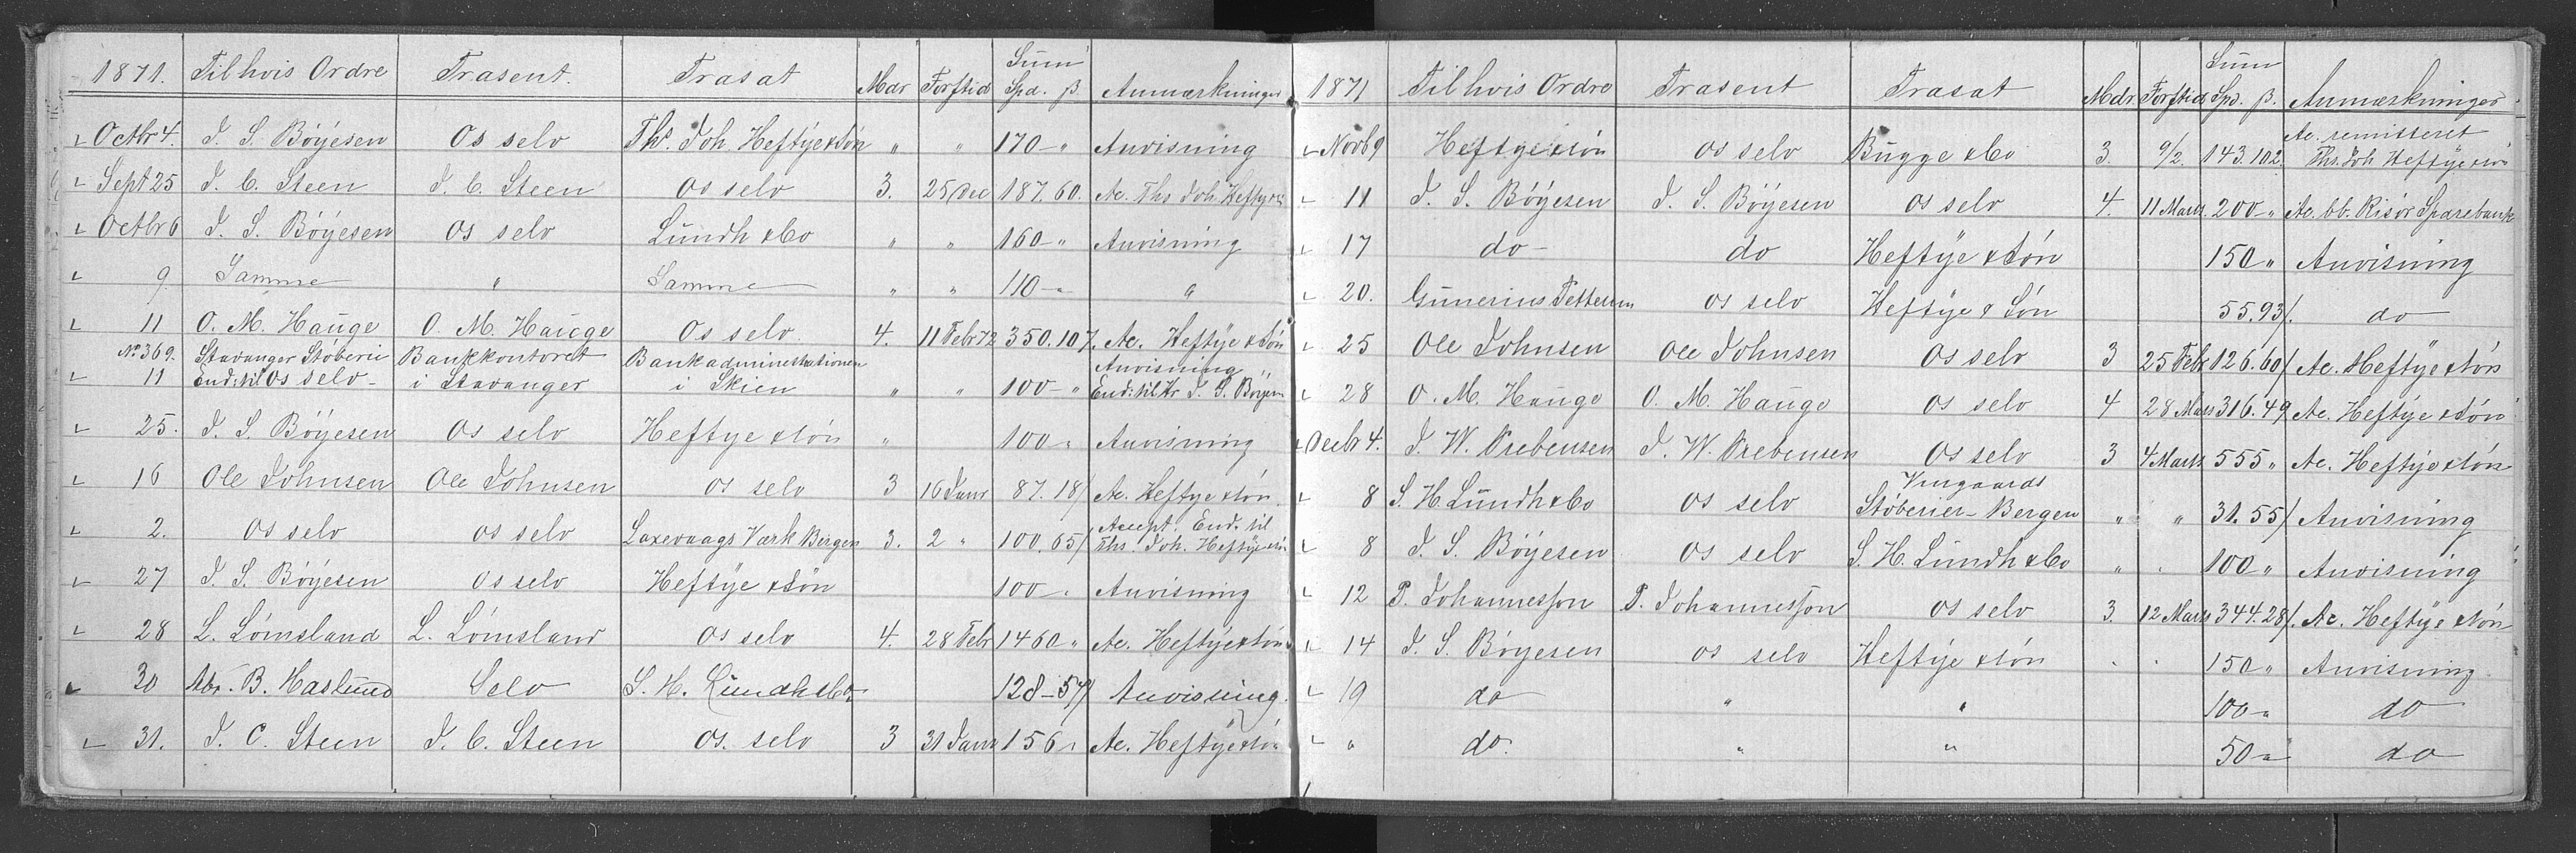 1871. Til hvis Ordre Trasent. Trasat Mdr Forftid Sum Spd. β. Anmærkninger
Octbr 4. J. S. Böÿesen Os selv Ths. Joh. Heftÿe & Sön " " 170 - " Anvisning
Sept 25 J. C. Steen J. C. Steen os selv 3. 25 Dec 187. 60. Ac. Ths Joh. Heftye
Octbr 6 J. S. Böÿesen os selv Lundh & Co " " 160 - " Anvisning
9. Samme " Samme " " 110 - " "
11 O. M. Hauge O. M. Hauge Os selv 4. 11 Febr 72 350. 107. Ac. Heftÿe & Sön
No. 369. Stavanger Stöberi Bankkontoret Bankadministrationen Anvisning
11 End: til os selv - i Stavanger i Skien " " 100 - " End: til Hr J. S. Böÿesen
25. J. S. Böÿesen Os selv Heftye & Sön " 100 " Anvisning
16 Ole Johnsen Ole Johnsen os selv 3 16 Janr 87. 18/ Ac. Heftye & Sön
2. os selv os selv Laxevaags Værk Bergen 3. 2 " 100. 65/ Accept. End. til Ths. Joh. Heftye & Sön
27 J. S. Böÿesen os selv Heftÿe & Sön 100 - " Anvisning
28 L. Lömsland L. Lömsland os selv 4. 28 Febr 1460 " Ac. Heftÿe & Sön
30 B. Haslund Selv S. H. Lundh & Co 128 - 57/ Anvisning.
31. J. C. Steen J. C. Steen os. selv 3 31 Janr 156 " Ac. Heftÿe & Sön
1871 Til hvis Ordre Trasent Trasat Mdr Forftid Sum Spd. β. Anmærkninger
Novb 9 Heftye & Sön os selv Bugge & Co 3. 9/2. 143. 102. Ac. remitteret Ths. Joh Heftye & Sön
11 J. S. Böÿesen J. S. Böÿesen os selv 4. 11 Marts 200 " Ac. bb. Risör Sparebank
17 do - do Heftÿe & Sön 150 " Anvisning
20. Gunerius Pettersen os selv Heftÿe & Sön 55. 93/. do
25 Ole Johnsen Ole Johnsen Os selv 3 25 Febr 126. 60/ Ac. Heftÿe & Sön
28 O. M. Hauge O. M. Hauge os selv 4 28 Mars 316. 49 Ac. Heftÿe & Sön
Decbr 4. J. W. Prebensen J. W. Prebensen Os selv 3 4 Marts 555 " Ac. Heftÿe & Sön
8 S. H. Lundh & Co os selv Vingaards Stöberier - Bergen " " 31. 55/ Anvisning
8 J. S. Böÿesen os selv S. H. Lundh & Co " " 100 " Anvisning
12 P. Johannesson P. Johannesson os selv 3. 12 Mars 344. 28/. Ac. Heftÿe & Sön
14 J. S. Böÿesen os selv Heftÿe & Sön " " 150 " Anvisning
19 do " " 100 " do
" do. " " 50 " do